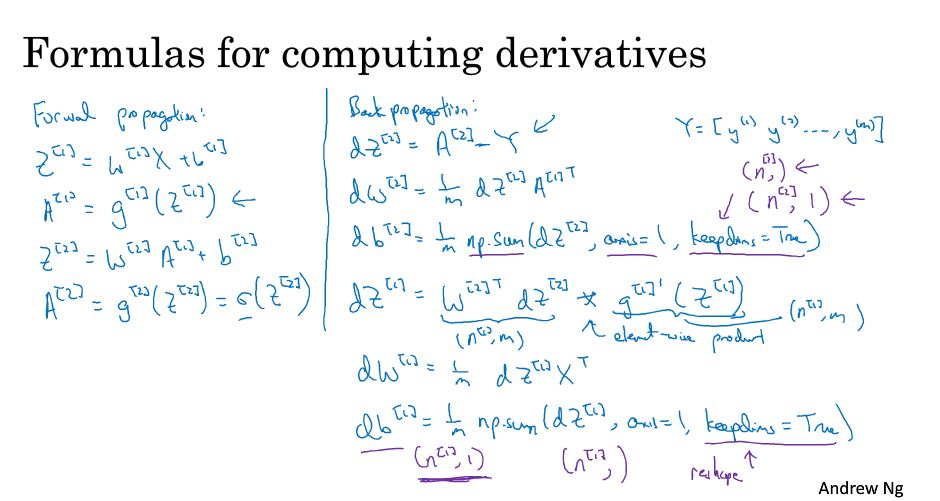 Formulas for computing derivatives
Forward propagation:
Z^[1] = W^[1]X + b^[1]
A^[1] = g^[1](Z^[1]) ←
Z^[2] = W^[2]A^[1] + b^[2]
A^[2] = g^[2](Z^[2]) = σ(Z^[2])
Back propagation:
dZ^[2] = A^[2] - Y ↙
Y = [y^(1) y^(2) ..., y^(m)]
dW^[2] = 1/m dZ^[2] A^[1]T
(n^[2],) ←
↙ (n^[2], 1) ←
db^[2] = 1/m np.sum(dZ^[2], axis=1, keepdims=True)
dZ^[1] = W^[2]T dZ^[2] * g^[1]'(Z^[1])
(n^[1], m)
↖ element-wise product
(n^[1], m)
dW^[1] = 1/m dZ^[1] X^T
db^[1] = 1/m np.sum(dZ^[1], axis=1, keepdims=True)
(n^[1], 1)
(n^[1],)
reshape ↑
Andrew Ng